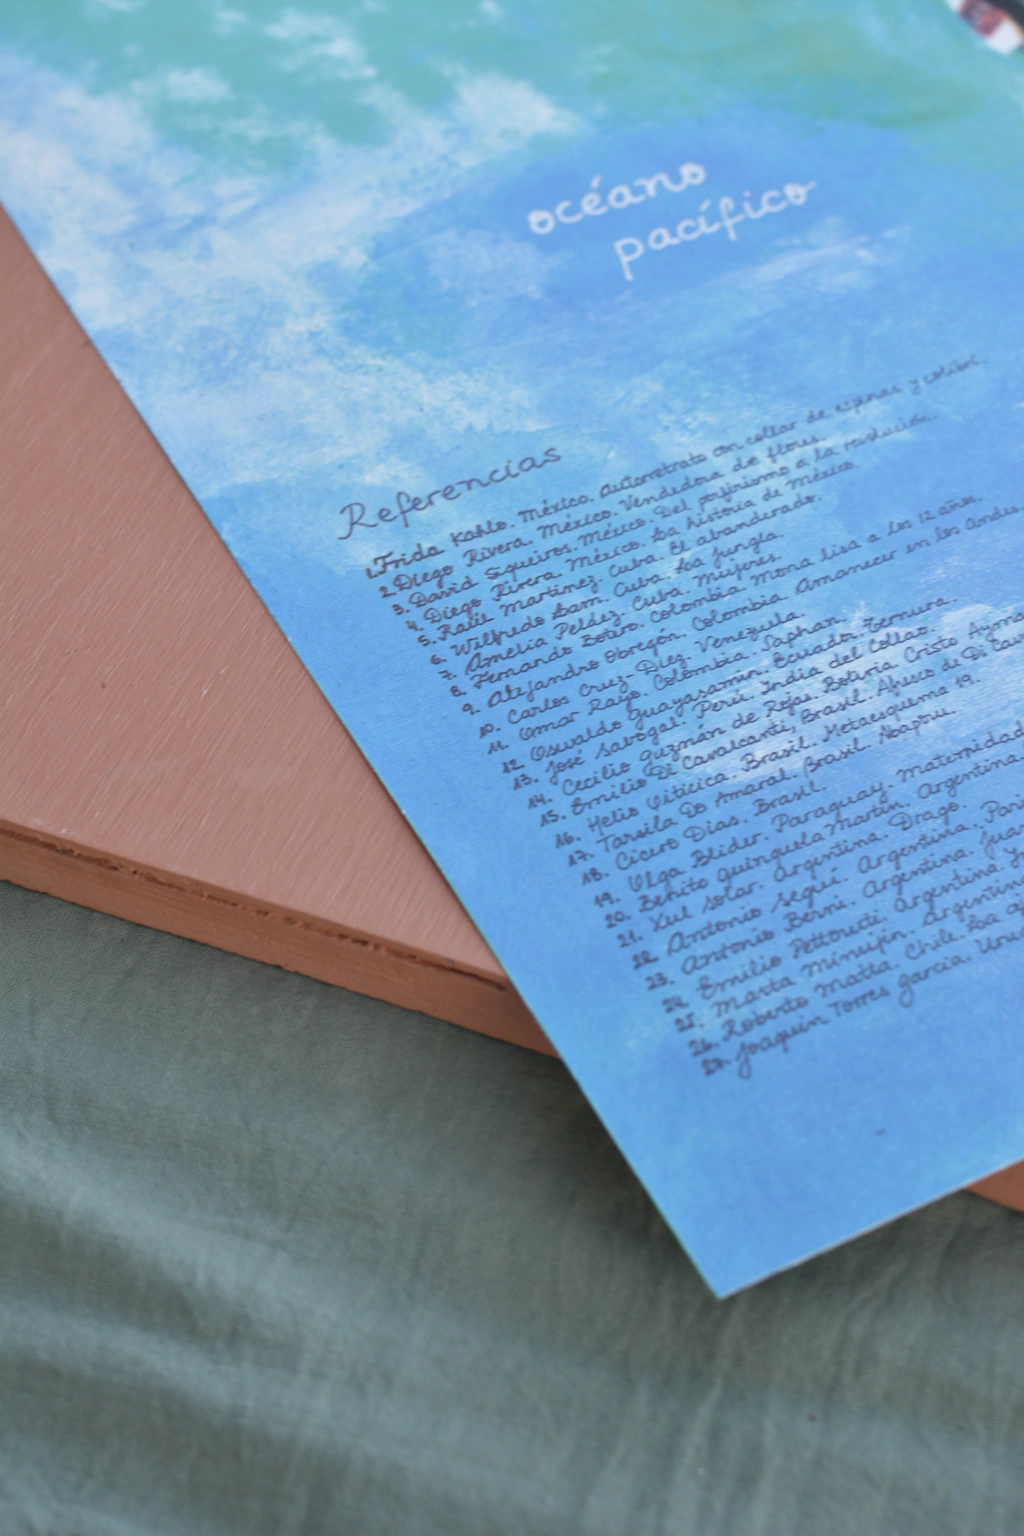 océano
pacífico
Referencias
1. Frida Kahlo. México. Autorretrato con collar de espinas y colibrí.
2. Diego Rivera. México. Vendedora de flores.
3. David Siqueiros. México. Del porfirismo a la revolución.
4. Diego Rivera. México. La historia de México.
5. Raúl Martinez. Cuba. El abanderado.
6. Wilfredo Lam. Cuba. La jungla.
7. Amelia Peláez. Cuba. Mujeres.
8. Fernando Botero. Colombia. Mona lisa a los 12 años.
9. Alejandro Obregón. Colombia. Amanecer en los Andes.
10. Carlos Cruz-Diez. Venezuela.
11. Omar Rayo. Colombia. Saphan.
12. Oswaldo Guayasamin. Ecuador. Ternura.
13. José Sabogal. Perú. India del Collao.
14. Cecilio Guzmán de Rojas. Bolivia. Cristo Ayma
15. Emilio Di Cavalcanti, Brasil. Afresco de Di Cav
16. Helio Oiticica. Brasil. Metaesquema 19.
17. Tarsila Do Amaral. Brasil. Abaporu.
18. Cícero Dias. Brasil.
19. Olga Blider. Paraguay. Maternidad
20. Benito quinquela Martín. Argentina.
21. Xul Solar. Argentina. Drago.
22. Antonio Seguí. Argentina. Pari
23. Antonio Berni. Argentina. Juan
24. Emilio Pettoruti. Argentina.
25. Marta Minujín. Argentina
26. Roberto Matta. Chile. La
27. Joaquin Torres García. Uru